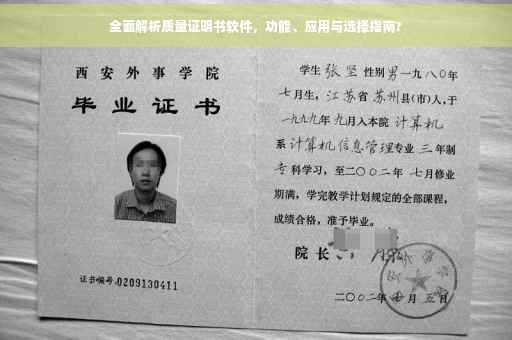 全面解析质量证明书软件，功能、应用与选择指南?
西安外事学院
毕业证书
证书编号:0209130411
学生 张坚 性别 男 一九八〇年
七月生，江苏省苏州县(市)人，于
一九九九年九月入本院 计算机
系 计算机信息管理专业 三 年制
专科学习，至二〇〇二年 七月修业
期满，学完教学计划规定的全部课程，
成绩合格，准予毕业。
院长
二〇〇二年 月 五日